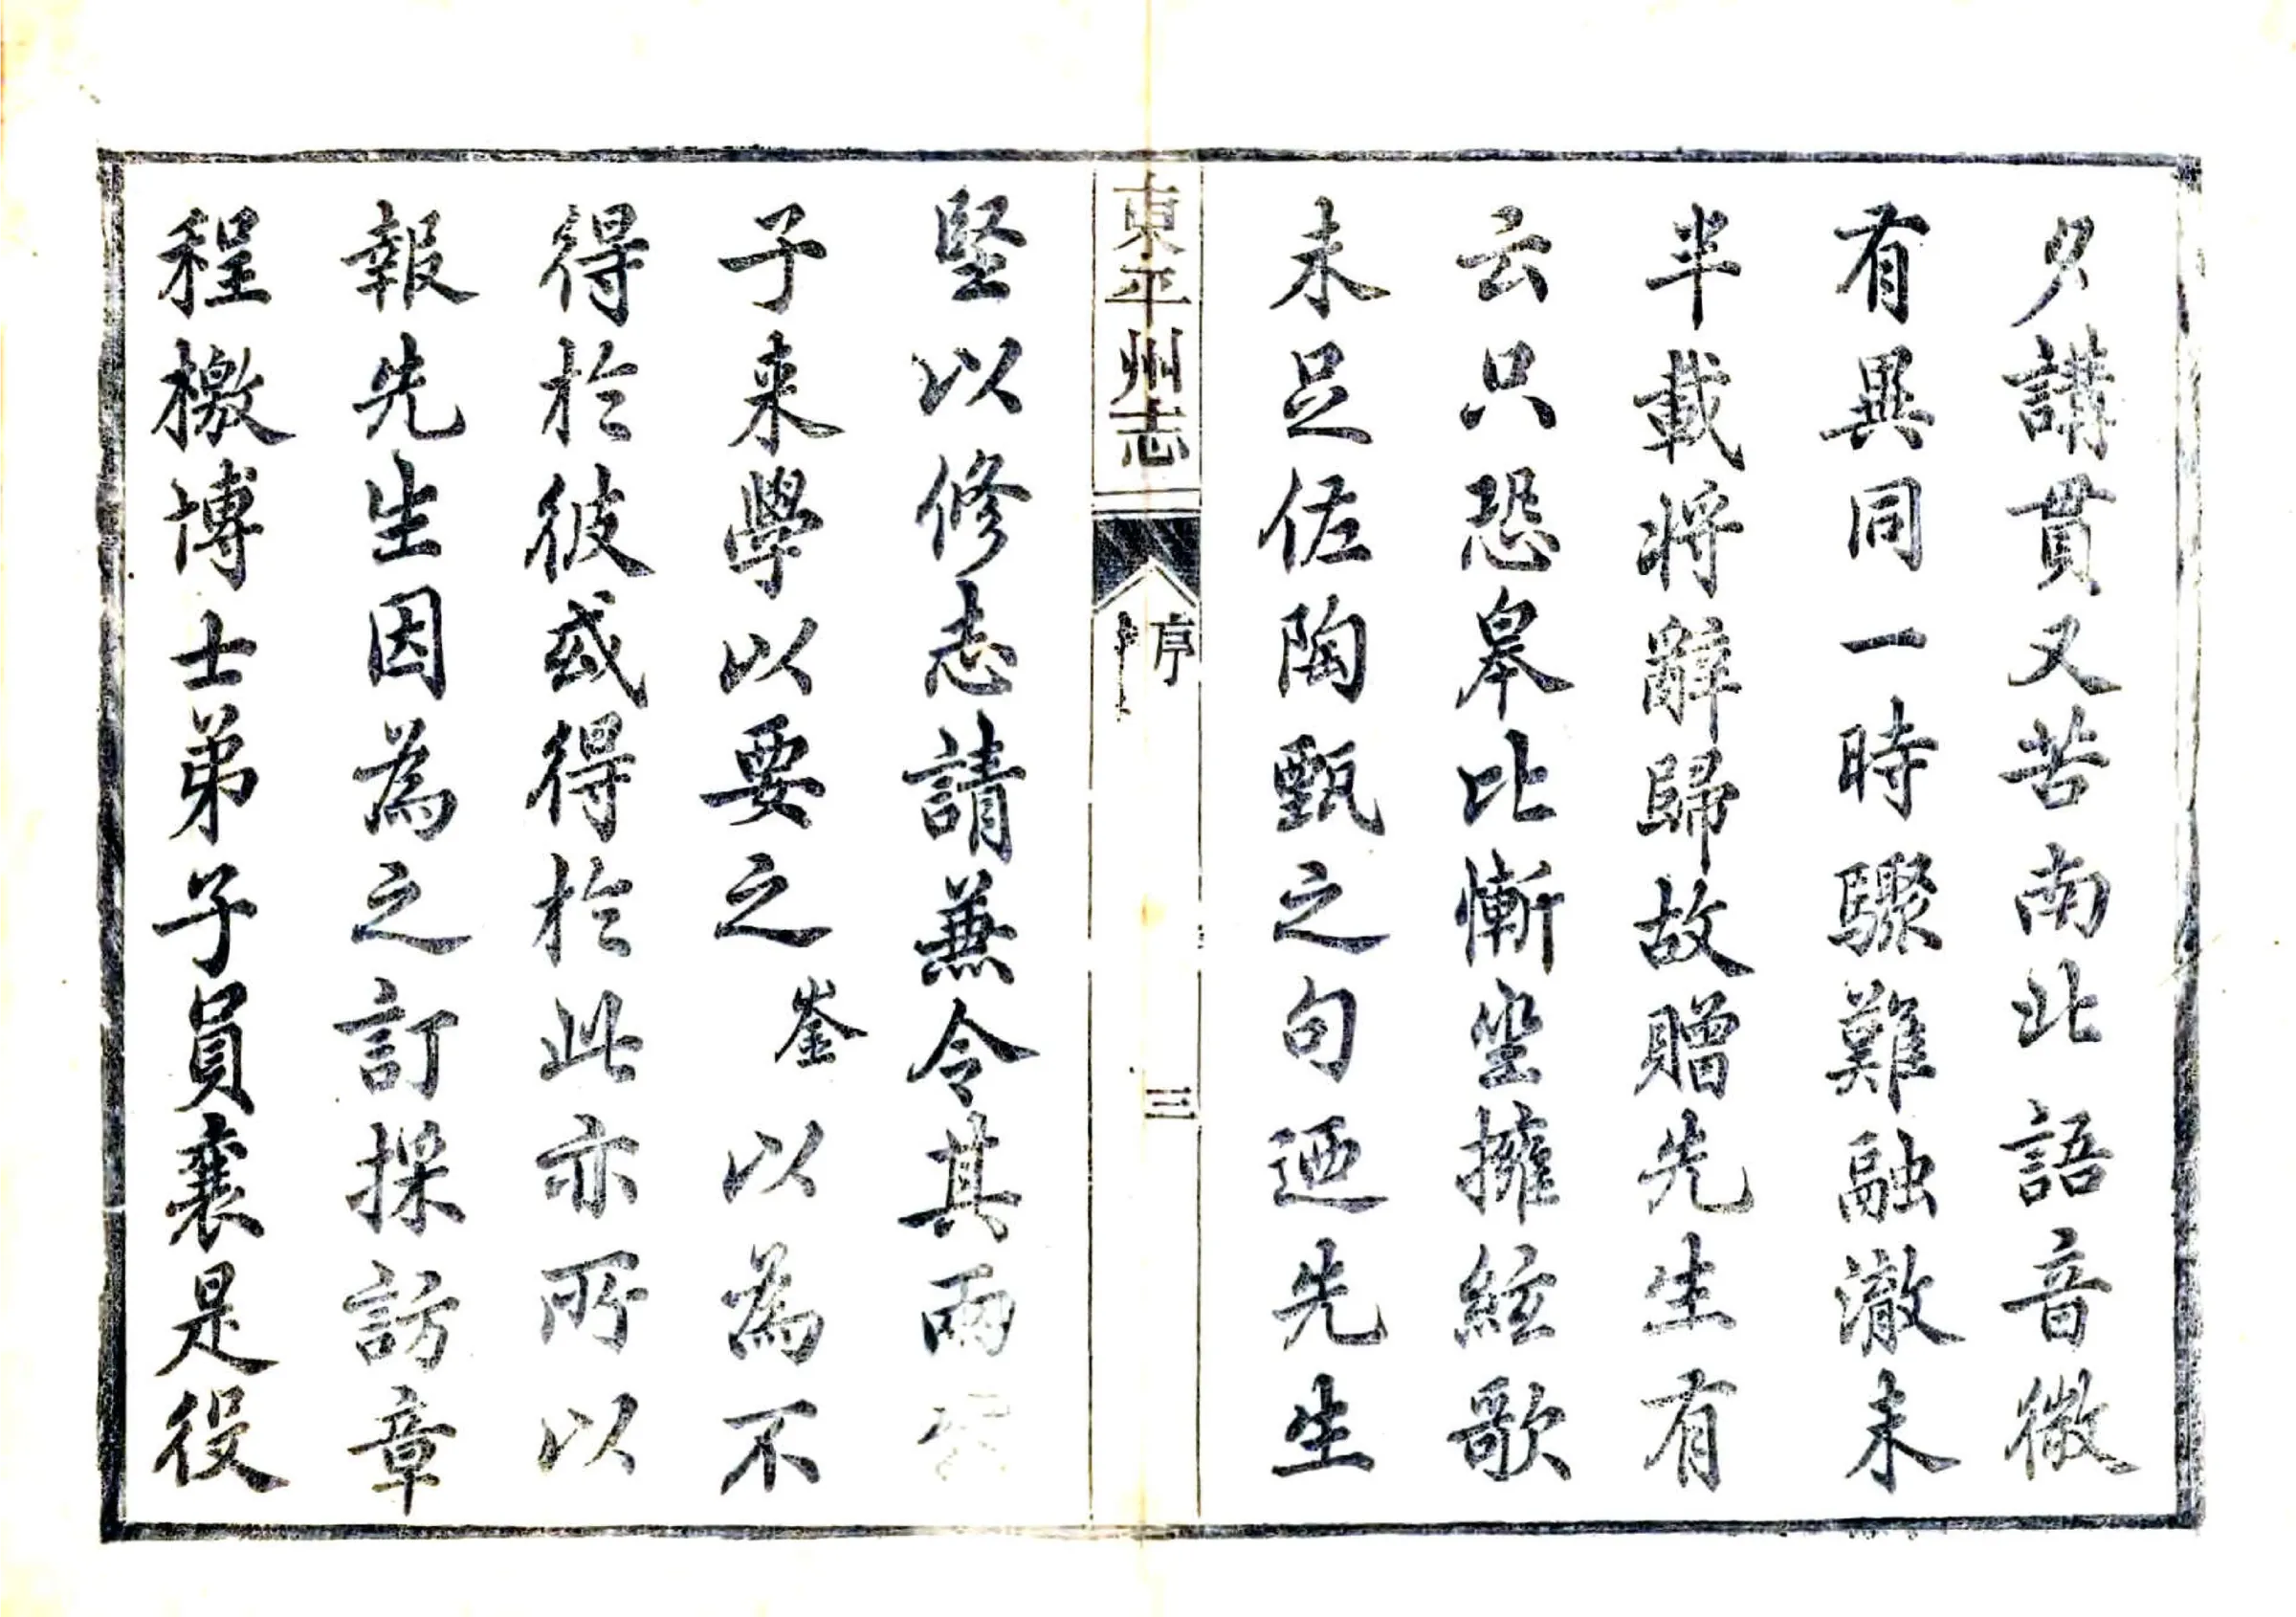 夕講貫又苦南北語音微
有異同一時驟難融澈未
半載将辭歸故贈先生有
云只恐皋比慚坐擁絃歌
未足佐陶甄之句迺先生
東平州志
序
三
堅以修志請兼令其兩
子来學以要之崟以為不
得於彼或得於此亦所以
報先生因為之訂採訪章
程檄博士弟子員襄是役